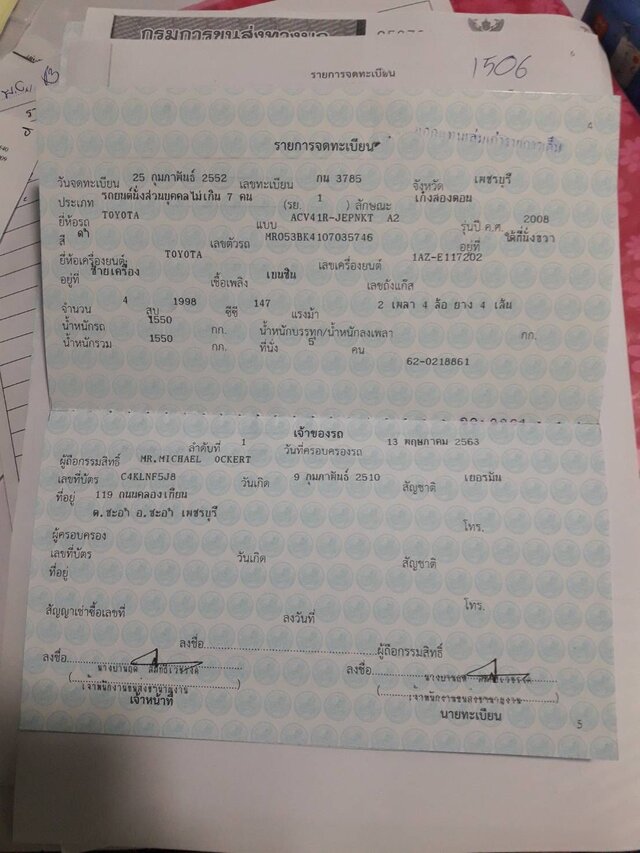 กรมการขนส่งทางบก
รายการจดทะเบียน
1506
4
รายการจดทะเบียน
วันจดทะเบียน 25 กุมภาพันธ์ 2552 เลขทะเบียน กน 3785 จังหวัด เพชรบุรี
ประเภท รถยนต์นั่งส่วนบุคคลไม่เกิน 7 คน (รย. 1 ) ลักษณะ เก๋งสองตอน
ยี่ห้อรถ TOYOTA แบบ ACV41R-JEPNKT A2 รุ่นปี ค.ศ. 2008
สี ดำ เลขตัวรถ MR053BK4107035746 อยู่ที่ ใต้ที่นั่งขวา
ยี่ห้อเครื่องยนต์ TOYOTA เลขเครื่องยนต์ 1AZ-E117202
อยู่ที่ ซ้ายเครื่อง เชื้อเพลิง เบนซิน เลขถังแก๊ส
จำนวน 4 สูบ 1998 ซีซี 147 แรงม้า 2 เพลา 4 ล้อ ยาง 4 เส้น
น้ำหนักรถ 1550 กก. น้ำหนักบรรทุก/น้ำหนักลงเพลา กก.
น้ำหนักรวม 1550 กก. ที่นั่ง 5 คน
62-0218861
เจ้าของรถ
ลำดับที่ 1 วันที่ครอบครองรถ 13 พฤษภาคม 2563
ผู้ถือกรรมสิทธิ์ MR.MICHAEL OCKERT
เลขที่บัตร C4KLNF5J8 วันเกิด 9 กุมภาพันธ์ 2510 สัญชาติ เยอรมัน
ที่อยู่ 119 ถนนคลองเทียน
ต.ชะอำ อ.ชะอำ เพชรบุรี โทร.
ผู้ครอบครอง
เลขที่บัตร วันเกิด สัญชาติ
ที่อยู่
โทร.
สัญญาเช่าซื้อเลขที่ ลงวันที่
ลงชื่อ ผู้ถือกรรมสิทธิ์
ลงชื่อ ลงชื่อ
(เจ้าพนักงานขนส่งชำนาญงาน) (เจ้าพนักงานขนส่งชำนาญงาน)
เจ้าหน้าที่ นายทะเบียน
5